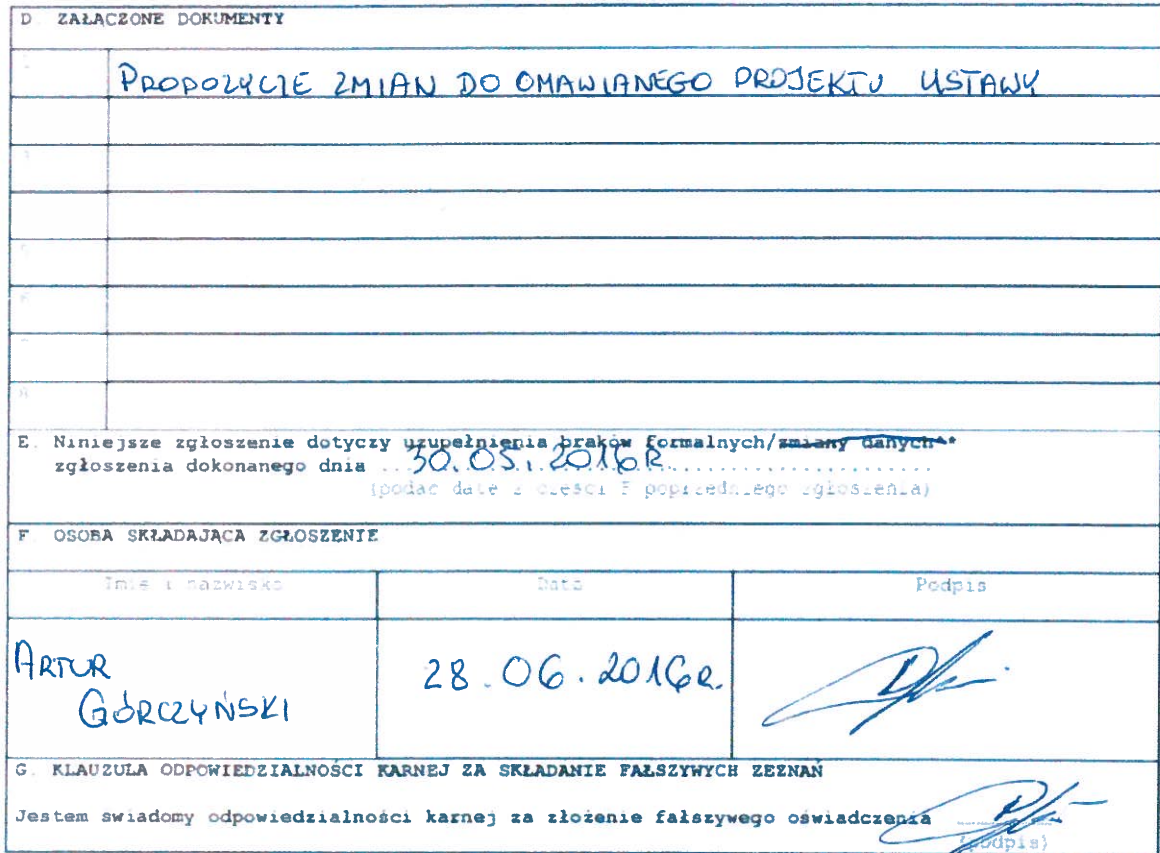 D. ZAŁĄCZONE DOKUMENTY
PROPOZYCJE ZMIAN DO OMAWIANEGO PROJEKTU USTAWY
E. Niniejsze zgłoszenie dotyczy uzupełnienia braków formalnych/zmiany danych**
zgłoszenia dokonanego dnia ...30.05.2016R......
(podać datę z części F poprzedniego zgłoszenia)
F. OSOBA SKŁADAJĄCA ZGŁOSZENIE
Imię i nazwisko Data Podpis
ARTUR
GÓRCZYŃSKI 28.06.2016R.
G. KLAUZULA ODPOWIEDZIALNOŚCI KARNEJ ZA SKŁADANIE FAŁSZYWYCH ZEZNAŃ
Jestem swiadomy odpowiedzialności karnej za złożenie fałszywego oświadczenia
(podpis)